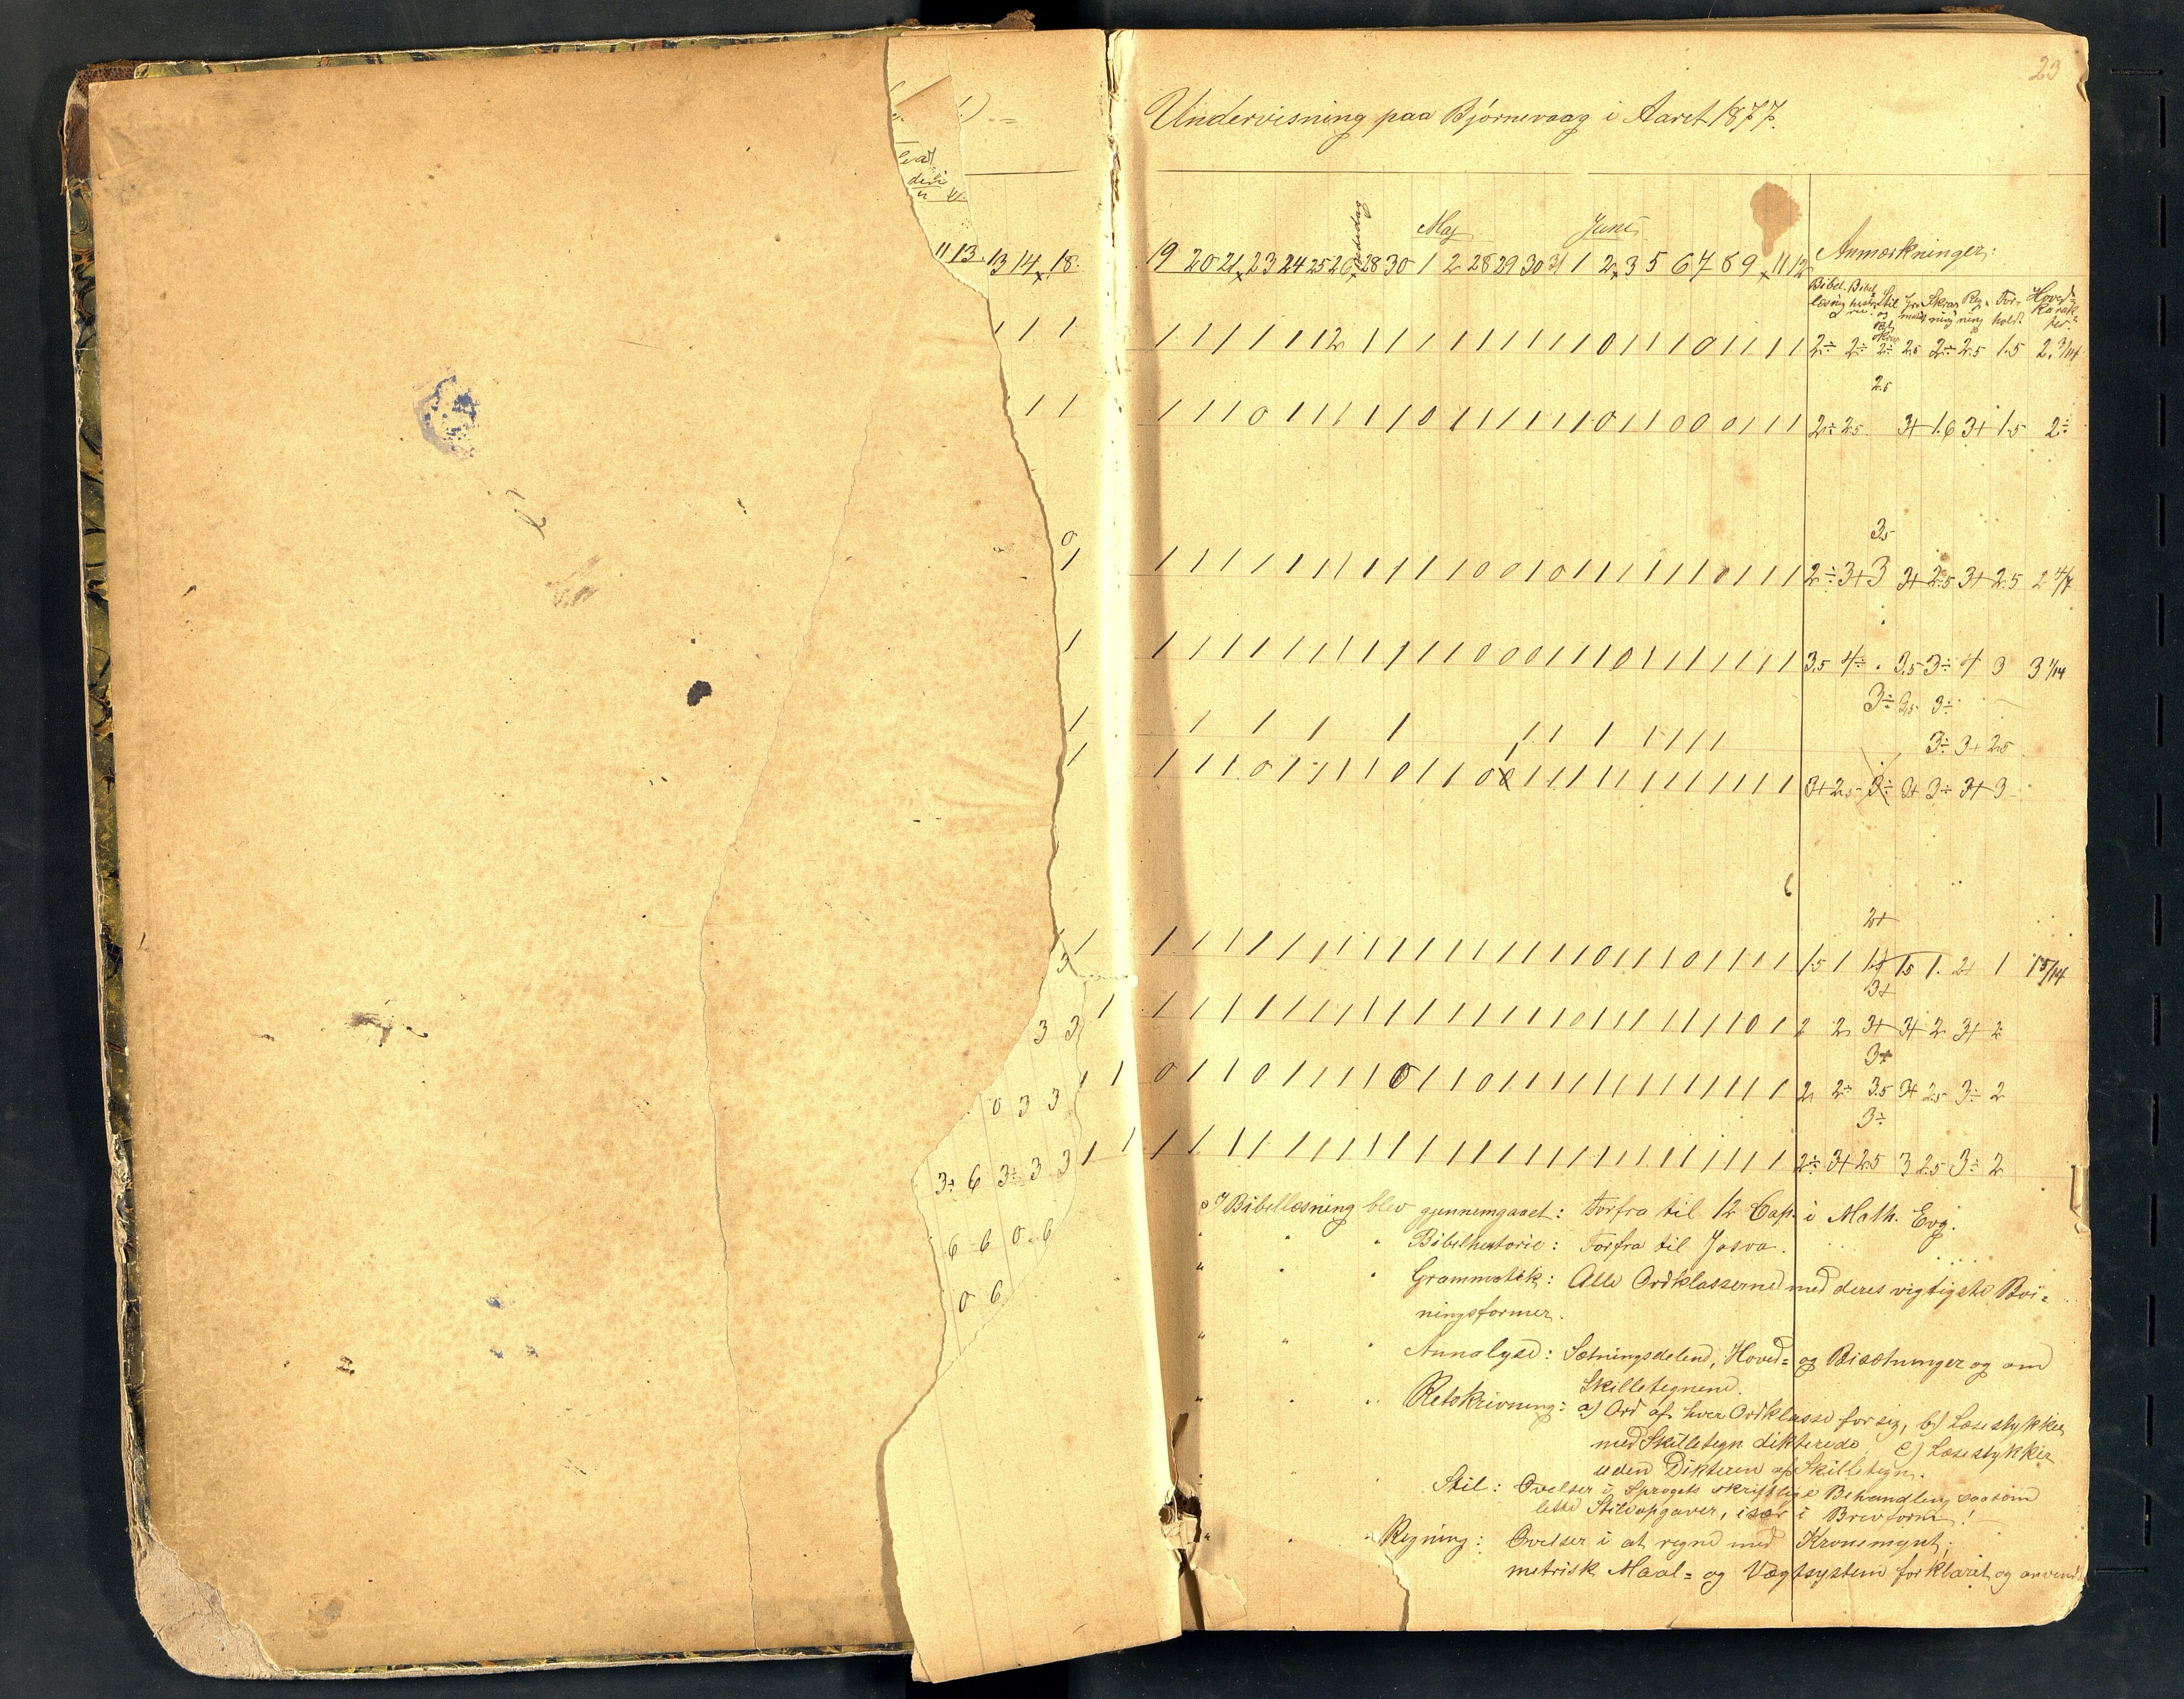 23
Undervisning paa Bjørnevaag i Aaret 1877.
Maj Juni
11 13 13 14 x 18 19 20 21 x 23 24 25 26 x 28 30 1 2 28 29 30 31 1 2 x 3 5 6 7 8 9 x 11 12 Anmærkninger:
Bibel- Bibel- Stil Skriv- Reg- For- Hoved-
læsning og ning ning hold. karak-
ter.
1 1 1 1 1 1 1 1 1 1 2 1 1 1 1 1 1 1 1 1 1 0 1 1 1 0 1 1 1 1 2÷ 2÷ 2÷ 2.5 2÷ 2.5 1.5 2.3/14
2.5
1 1 1 1 1 0 1 1 1 1 1 1 0 1 1 1 1 1 1 1 0 1 1 0 0 0 1 1 1 2÷ 2.5 3+ 1.6 3+ 1.5 2÷
0
3.5
1 1 1 1 1 1 1 1 1 1 1 1 1 0 0 1 0 1 1 1 1 1 1 0 1 1 1 2÷ 3+ 3 3+ 2.5 3+ 2.5 2 4/7
1 1 1 1 1 1 1 1 1 1 1 1 1 0 0 0 1 1 1 0 1 1 1 1 1 1 1 3.5 4÷ 3.5 3÷ 4 3 3 1/14
3÷ 3.5 3÷
1 1 1 1 1 1 1 1 1 1 1 1 3÷ 3+ 2.5
1 1 1 1 0 1 1 1 1 0 1 1 0 1 1 1 1 1 1 1 1 1 1 1 1 1 3+ 2.5 3÷ 3+ 3÷ 3+ 3
2+
1 1 1 1 1 1 1 1 1 1 1 1 1 1 1 1 1 1 0 1 1 1 0 1 1 1 1 1.5 1 1.5 1. 2+ 1 1 5/14
3
3+
1 1 1 1 1 1 1 1 1 1 1 1 1 1 1 1 1 0 1 1 1 1 1 1 1 0 1 2 2 3+ 3+ 2 3+ 2
3 3
3+
1 1 0 1 1 0 1 1 1 1 0 1 1 0 1 1 1 1 1 1 1 1 1 1 1 1 2 2÷ 3.5 3+ 2.5 3÷ 2
0 3 3
3÷
1 1 1 1 1 1 1 1 1 1 1 1 1 1 1 1 1 1 1 1 1 1 1 1 1 1 2÷ 3+ 2.5 3 2.5 3÷ 2
3÷ 6 3÷ 3 3
6 6 0 6
0 6
I Bibellæsning blev gjennemgaaet: Forfra til 12 Cap. i Math. Evg.
" " " Bibelhistorie: Forfra til Josva.
" " " Grammatik: Alle Ordklasserne med deres vigtigste Bøi=
ningsformer.
" " " Annalyse: Sætningsdelene, Hoved= og Bisætninger og om
Skilletegnene.
" " " Retskrivning: a) Ord af hver Ordklasse for sig, b) Læsestykker
med Skilletegn dikterede, c) Læsestykker
uden Dikteren af Skilletegn.
" " " Stil: Øvelser i Sprogets skriftlige Behandling saasom
lette Stilopgaver, især i Brevform!
" " " Regning: Øvelser i at regne med Kronemynt;
metrisk Maal= og Vægtsystem forklaret og anvendt